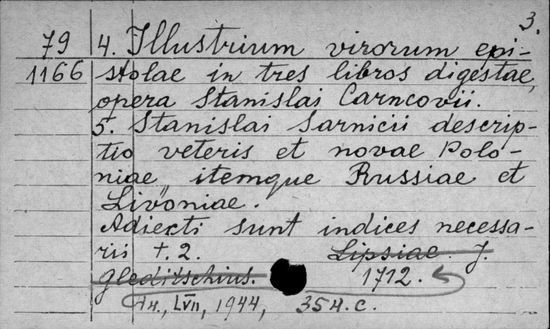 3.
79 4. Illustrium virorum epi-
1166 stolae in tres libros digestae,
opera Stanislai Carncovii.
5. Stanislai Sarnicii descrip-
tio veteris et novae Polo-
niae itemque Russiae et
Livoniae.
Adiecti sunt indices necessa-
rii t. 2. Lipsiae J.
Gleditschius. 1712.
LVII, 1944, 354 c.